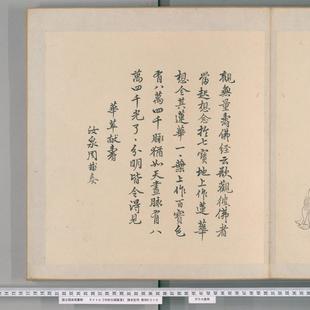 觀無量壽佛經云欲觀彼佛者
當起想念於七寶地上作蓮華
想令其蓮華一葉上作百寶色
有八萬四千脉猶如天畫脉有八
萬四千光了了分明皆令得見
華萃献壽
汝泉